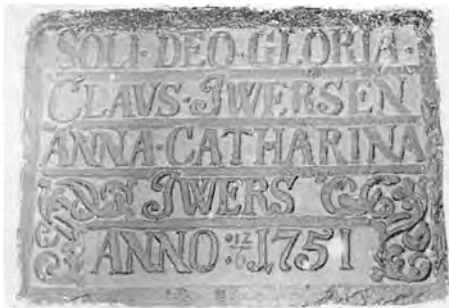 SOLI·DEO·GLORIA·
CLAVS·JWERSEN
ANNA·CATHARINA
JWERS
ANNO·12/6·1751